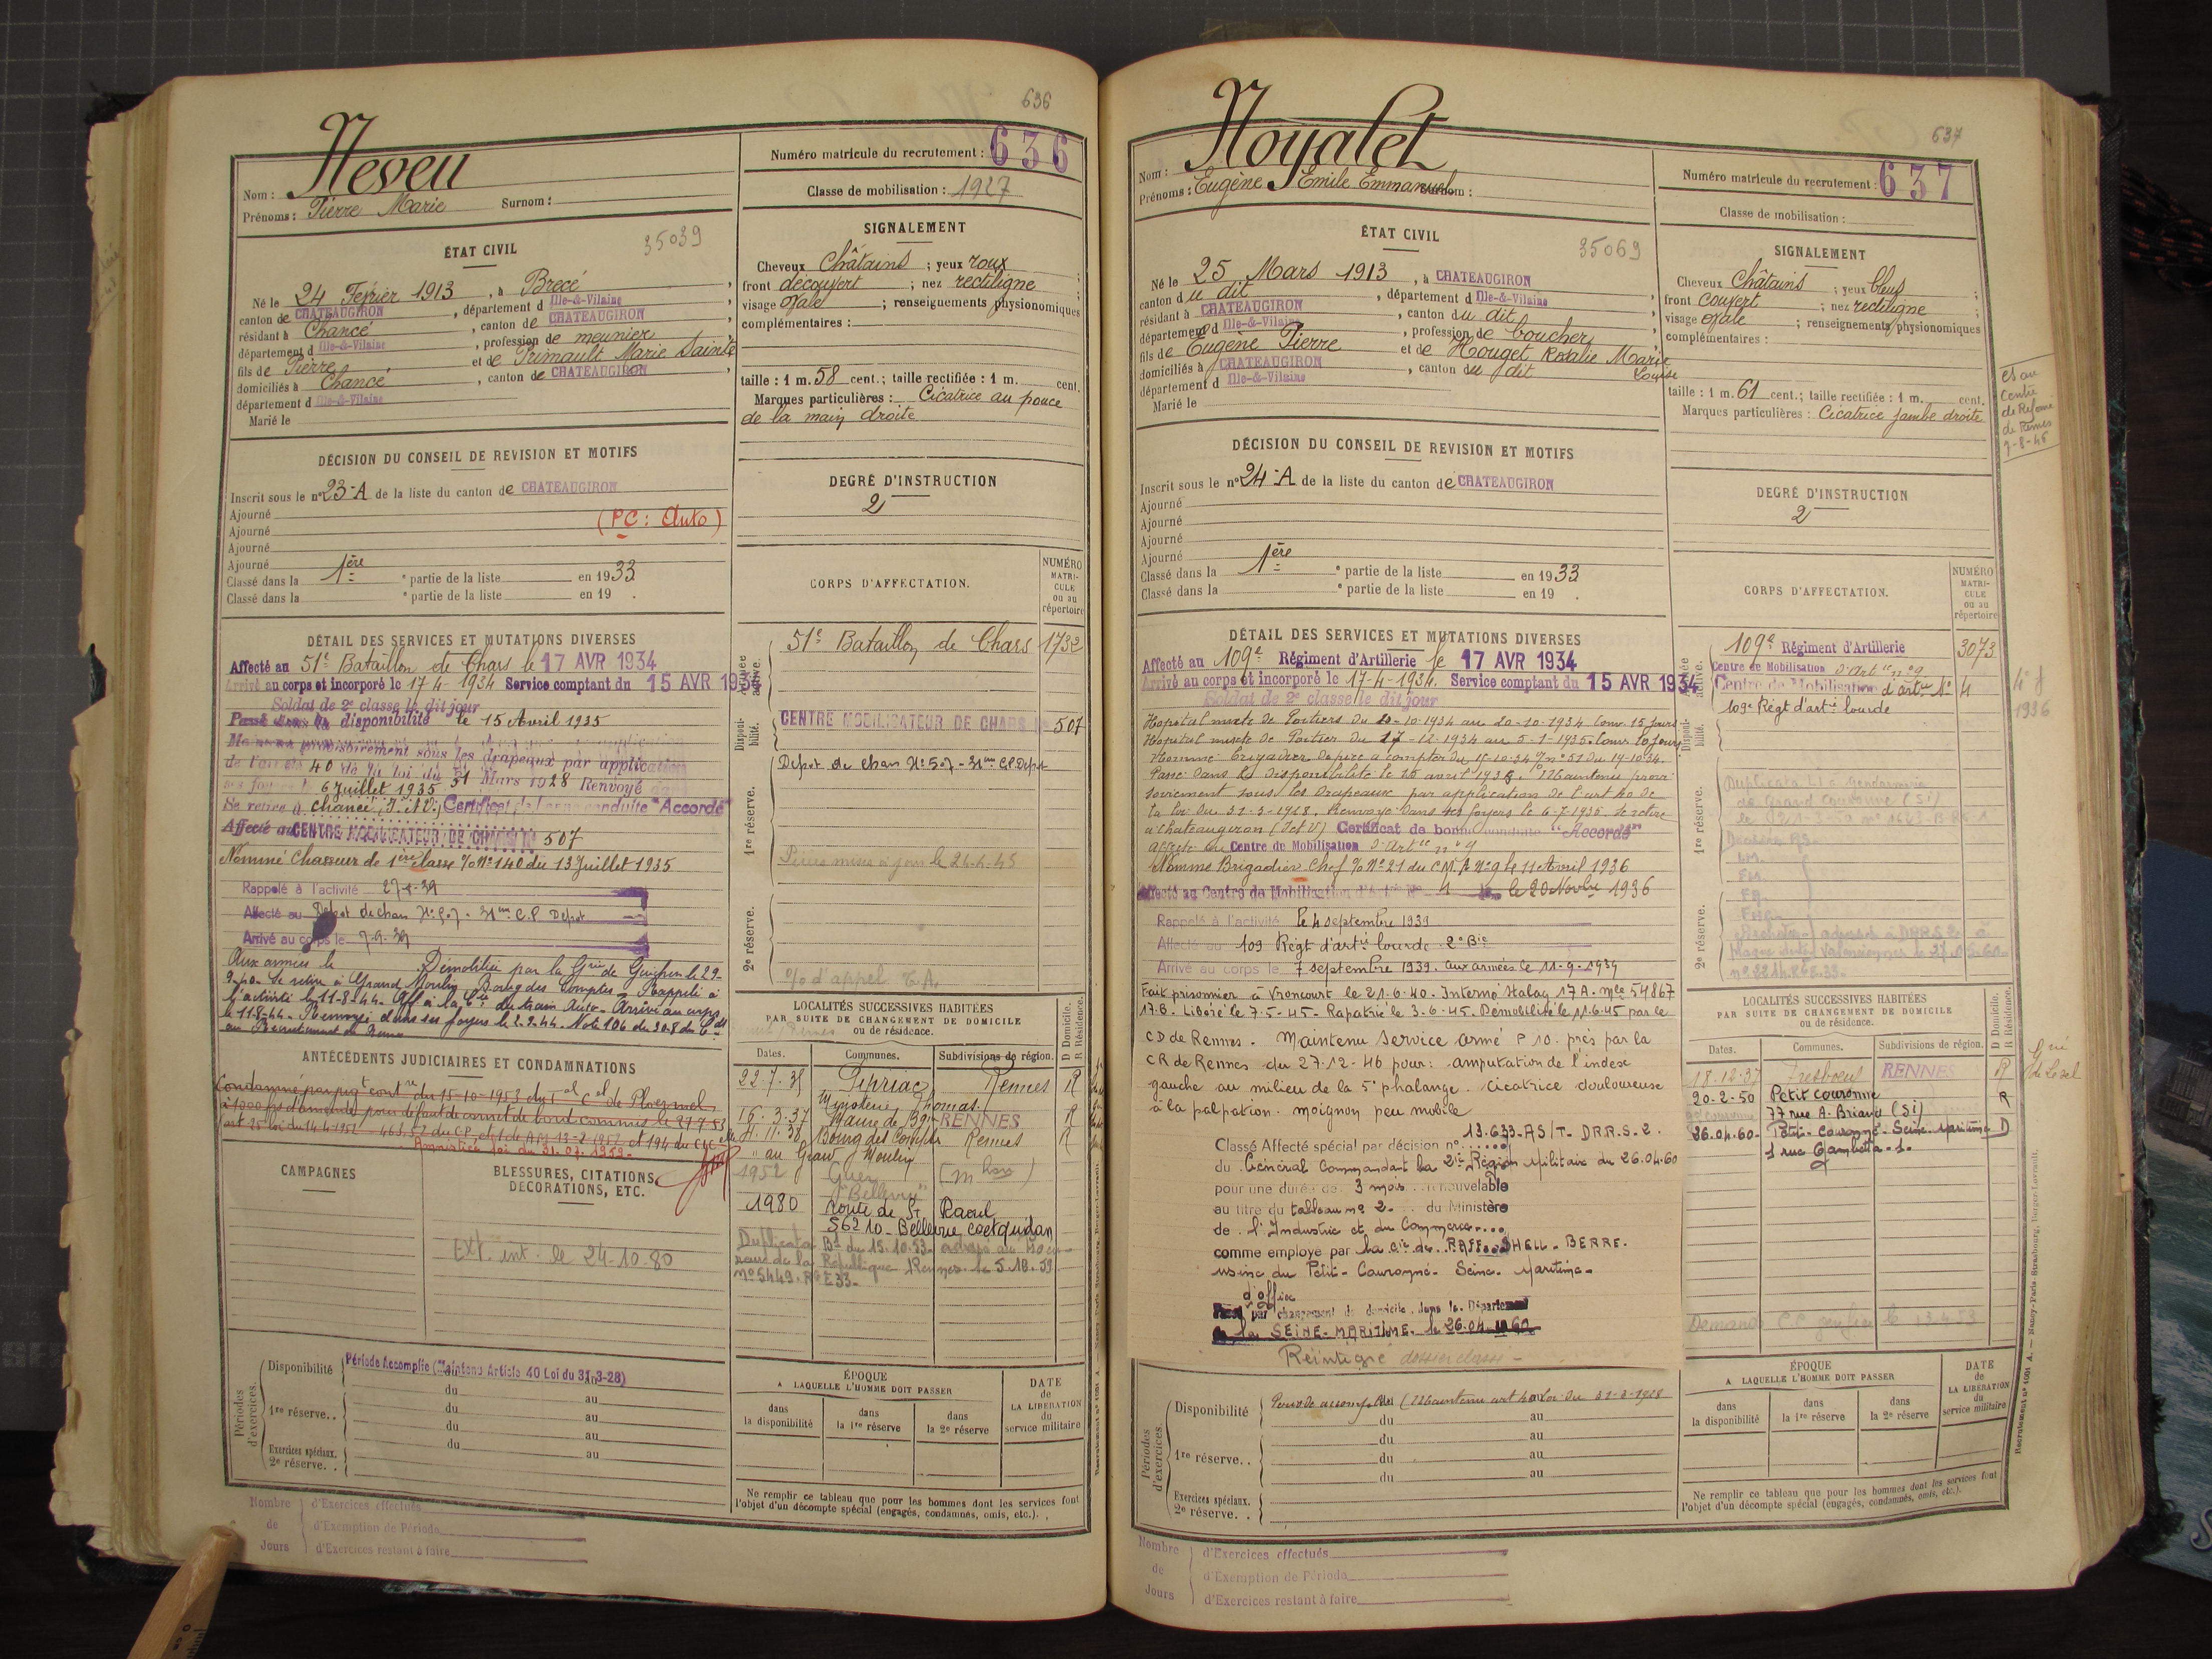 636
Nom : Neveu
Prénoms : Pierre Marie Surnom :
Numéro matricule du recrutement : 636
Classe de mobilisation : 1927
ÉTAT CIVIL
35039
Né le 24 Février 1913, à Brecé
canton de CHATEAUGIRON, département d Ille-&-Vilaine
résidant à Chancé, canton de CHATEAUGIRON
département d Ille-&-Vilaine, profession de meunier
fils de Pierre et de Primault Marie Sainte
domiciliés à Chancé, canton de CHATEAUGIRON
département d Ille-&-Vilaine
Marié le
SIGNALEMENT
Cheveux Châtains ; yeux roux
front découvert ; nez rectiligne
visage ovale ; renseignements physionomiques
complémentaires :
taille : 1 m. 58 cent. ; taille rectifiée : 1 m. cent.
Marques particulières : Cicatrice au pouce
de la main droite
DÉCISION DU CONSEIL DE REVISION ET MOTIFS
Inscrit sous le n° 23-A de la liste du canton de CHATEAUGIRON
Ajourné
(PC : Auto)
Ajourné
Ajourné
Ajourné
Classé dans la 1ère e partie de la liste en 1933
Classé dans la e partie de la liste en 19 .
DEGRÉ D'INSTRUCTION
2
CORPS D'AFFECTATION.
NUMÉRO MATRI-CULE ou au répertoire
51e Bataillon de Chars 1732
CENTRE MOBILISATEUR DE CHARS N° 507
Depot de chars N° 507 - 31eme C.P. Depot
Pièces mises à jour le 26.6.45
% d'appel T.A.
Armée active.
Disponibilité.
1re réserve.
2e réserve.
DÉTAIL DES SERVICES ET MUTATIONS DIVERSES
Affecté au 51e Bataillon de Chars le 17 AVR 1934
Arrivé au corps et incorporé le 17-4-1934 Service comptant du 15 AVR 1934
Soldat de 2e classe le dit jour
Passé dans la disponibilité le 15 Avril 1935
Maintenu provisoirement sous les drapeaux par application
de l'art de 40 de la loi du 31 Mars 1928 Renvoyé dans
ses foyers le 6 Juillet 1935
Se retire à Chancé (I. et V.) Certificat de bonne conduite "Accordé"
Affecté au CENTRE MOBILISATEUR DE CHARS N° 507
Nommé Chasseur de 1ère classe % N° 140 du 13 Juillet 1935
Rappelé à l'activité 27-8-39
Affecté au Depot de chars N° 507 - 31eme C.P. Depot
Arrivé au corps le 7-9-39
Aux armées le Démobilisé par la Grie de Guichen le 29-
9-40. Se retire à Grand Moulin Bourg des Comptes - Rappelé à
l'activité le 11-8-44. Aff à la Cie du train Auto - Arrivé au corps
le 11-8-44 - Renvoyé dans ses foyers le 2-9-44. Note 106 du 30-8 du Cdt
au Recrutement de Rennes
ANTÉCÉDENTS JUDICIAIRES ET CONDAMNATIONS
Condamné par jugt contre du 15-10-1953 du Tal Cel de Ploermel
à 1000 frs d'amende pour défaut de carnet de bord commis le 21.7.53
Amnistiée loi du 31.07.1959.
CAMPAGNES
BLESSURES, CITATIONS, DÉCORATIONS, ETC.
Ext. int. le 24-10-80
LOCALITÉS SUCCESSIVES HABITÉES
PAR SUITE DE CHANGEMENT DE DOMICILE
ou de résidence.
D Domicile. R Résidence.
Dates. Communes. Subdivisions de région.
22-7-35 Pipriac Rennes R
Minoterie Thomas
16-3-37 Maure de Bgne RENNES R
4.11.38 Bourg des Comptes Rennes R
" au Grand Moulin
1952 Guer (Mhan)
"Bellevue"
1980 route de St Raoul
56210 - Bellevue Coetquidan
Duplicata B2 du 15.10.53 adressé au Procu-
reur de la République Rennes le 5.10.59
N° 5449. R 233.
Périodes d'exercices.
Disponibilité Période Accomplie (Maintenu Article 40 Loi du 31-3-28)
du au
1re réserve.. du au
du au
du au
Exercices spéciaux. 2e réserve. .
ÉPOQUE
A LAQUELLE L'HOMME DOIT PASSER
dans la disponibilité
dans la 1re réserve
dans la 2e réserve
DATE de LA LIBÉRATION du service militaire
Ne remplir ce tableau que pour les hommes dont les services font
l'objet d'un décompte spécial (engagés, condamnés, omis, etc.).
Nombre de Jours
d'Exercices effectués
d'Exemption de Période
d'Exercices restant à faire
637
Nom : Noyalet
Prénoms : Eugène Emile Emmanuel Surnom :
Numéro matricule du recrutement : 637
Classe de mobilisation :
ÉTAT CIVIL
35069
Né le 25 Mars 1913, à CHATEAUGIRON
canton du dit, département d Ille-&-Vilaine
résidant à CHATEAUGIRON, canton du dit
département d Ille-&-Vilaine, profession de boucher
fils de Eugène Pierre et de Houget Rosalie Marie
Louise
domiciliés à CHATEAUGIRON, canton du dit
département d Ille-&-Vilaine
Marié le
SIGNALEMENT
Cheveux Châtains ; yeux bleus
front couvert ; nez rectiligne
visage ovale ; renseignements physionomiques
complémentaires :
taille : 1 m. 61 cent. ; taille rectifiée : 1 m. cent.
Marques particulières : Cicatrice jambe droite
Cs au
Centre
de Réforme
de Rennes
7-8-46
DÉCISION DU CONSEIL DE REVISION ET MOTIFS
Inscrit sous le n° 24-A de la liste du canton de CHATEAUGIRON
Ajourné
Ajourné
Ajourné
Ajourné
Classé dans la 1ère e partie de la liste en 1933
Classé dans la e partie de la liste en 19 .
DEGRÉ D'INSTRUCTION
2
CORPS D'AFFECTATION.
NUMÉRO MATRI-CULE ou au répertoire
109e Régiment d'Artillerie 3073
Centre de Mobilisation d'Artie n° 9
Centre de Mobilisation d'artie N° 4
109e Régt d'artie lourde
1936
Armée active.
Disponibilité.
1re réserve.
2e réserve.
Duplicata Gendarmerie
de Grand Couronne (SI)
DÉTAIL DES SERVICES ET MUTATIONS DIVERSES
Affecté au 109e Régiment d'Artillerie le 17 AVR 1934
Arrivé au corps et incorporé le 17-4-1934. Service comptant du 15 AVR 1934
Soldat de 2e classe le dit jour
Hopital mixte de Poitiers du 10-10-1934 au 20-10-1934 Conv. 15 jours
Hopital mixte de Poitiers du 17-12-1934 au 5-1-1935. Conv. 20 jours
Nommé Brigadier à compter du 17-10-34 % n° 51 du 14-10-34.
Passé dans la disponibilité le 15 avril 1935. Maintenu provi-
soirement sous les drapeaux par application de l'art 40 de
la loi du 31-3-1928. Renvoyé dans ses foyers le 6-7-1935. Se retire
à Chateaugiron (I et V) Certificat de bonne conduite "Accordé"
Affecté au Centre de Mobilisation d'Artie n° 9
Nommé Brigadier Chef % N° 21 du C.M.A. n° 9 le 11 Avril 1936
Affecté au Centre de Mobilisation d'Artie N° 4 le 20 Novbre 1936
Rappelé à l'activité le 4 septembre 1939
Affecté au 109 Régt d'artie lourde - 2e Bie
Arrivé au corps le 7 septembre 1939. aux armées le 11-9-1939
Fait prisonnier à Vroncourt le 21.6.40. Interné Stalag 17A. Mle 54867
17.B. Libéré le 7-5-45. Rapatrié le 3-6-45. Démobilisé le 11.6.45 par le
CD de Rennes. Maintenu service armé P 10. près par la
CR de Rennes du 27.12.46 pour : amputation de l'index
gauche au milieu de la 5e phalange. cicatrice douloureuse
à la palpation. moignon peu mobile
Classé Affecté spécial par décision n° 13.633-AS/T-D.R.R.S.2.
du Général Commandant la 2ie Région Militaire du 26.04.60
pour une durée de 3 mois renouvelable
au titre du tableau n° 2. du Ministère
de l'Industrie et du Commerce
comme employé par la Cie de RAFF. SHELL - BERRE.
usine du Petit-Couronne - Seine-Maritime -
d'office
Passé par changement de domicile dans le Département
de la SEINE-MARITIME. le 26.04.1960
Réintégré dossier classé -
LOCALITÉS SUCCESSIVES HABITÉES
PAR SUITE DE CHANGEMENT DE DOMICILE
ou de résidence.
D Domicile. R Résidence.
Dates. Communes. Subdivisions de région.
18.12.37 Tresboeuf RENNES R
20-2-50 Petit couronne R
77 rue A. Briand (SI)
26.04.60- Petit-Couronne-Seine-Maritime D
1 rue Gambetta - 1.
Grie
du Sel
Périodes d'exercices.
Disponibilité Période accomplie (Maintenu art 40 Loi du 31-3-1928
du au
1re réserve.. du au
du au
Exercices spéciaux. 2e réserve. .
ÉPOQUE
A LAQUELLE L'HOMME DOIT PASSER
dans la disponibilité
dans la 1re réserve
dans la 2e réserve
DATE de LA LIBÉRATION du service militaire
Ne remplir ce tableau que pour les hommes dont les services font
l'objet d'un décompte spécial (engagés, condamnés, omis, etc.).
Nombre de Jours
d'Exercices effectués
d'Exemption de Période
d'Exercices restant à faire
Nancy-Paris-Strasbourg, Berger-Levrault.